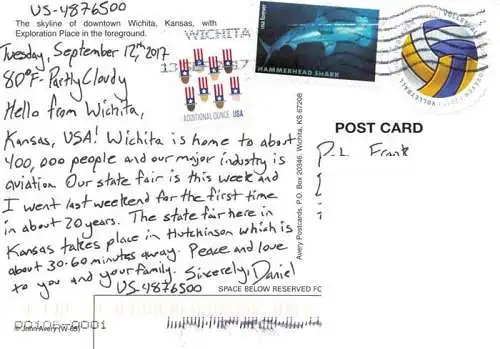 US-4876500
The skyline of downtown Wichita, Kansas, with
Exploration Place in the foreground.
Tuesday, September 12th, 2017
80°F-Partly Cloudy
Hello from Wichita,
Kansas, USA! Wichita is home to about
400,000 people and our major industry is
aviation. Our state fair is this week and
I went last weekend for the first time
in about 20 years. The state fair here in
Kansas takes place in Hutchinson which is
about 30-60 minutes away. Peace and love
to you and your family. Sincerely, Daniel
US-4876500
WICHITA
ADDITIONAL OUNCE USA
usa forever
HAMMERHEAD SHARK
VOLLEYBALL
VOLLEYBALL
Avery Postcards, P.O. Box 20346, Wichita, KS 67208
POST CARD
Frank
SPACE BELOW RESERVED FO
© John Avery (W-65)